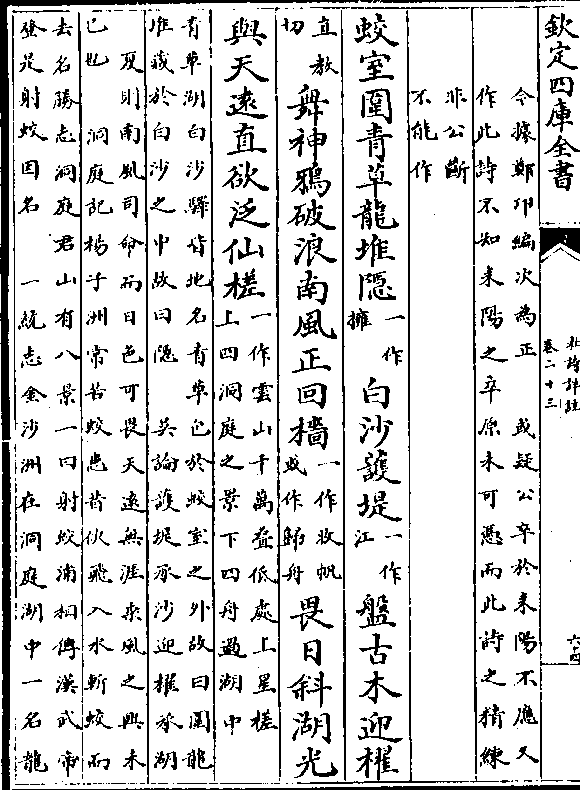 欽定四庫全書
杜詩詳註
卷二十三
六十四
今據鄭卬編次為正 或疑公卒於耒陽不應又
作此詩不知耒陽之卒原未可憑而此詩之精練
非公斷
不能作
蛟室圍青草龍堆隱一作擁白沙護堤一作江盤古木迎櫂
直教切舞神鴉破浪南風正回檣一作收帆或作歸舟畏日斜湖光
與天遠直欲泛仙槎一作雲山千萬疊低處上星槎
上四洞庭之景下四舟過湖中
青草湖白沙驛皆地名青草已於蛟室之外故曰圍龍
堆藏於白沙之中故曰隱 吳論護堤承沙迎櫂承湖
夏則南風司命而日色可畏天遠無涯乘風之興未
已也 洞庭記楊子洲常苦蛟患昔佽飛入水斬蛟而
去名勝志洞庭君山有八景一曰射蛟浦相傳漢武帝
登是射蛟因名 一統志金沙洲在洞庭湖中一名龍